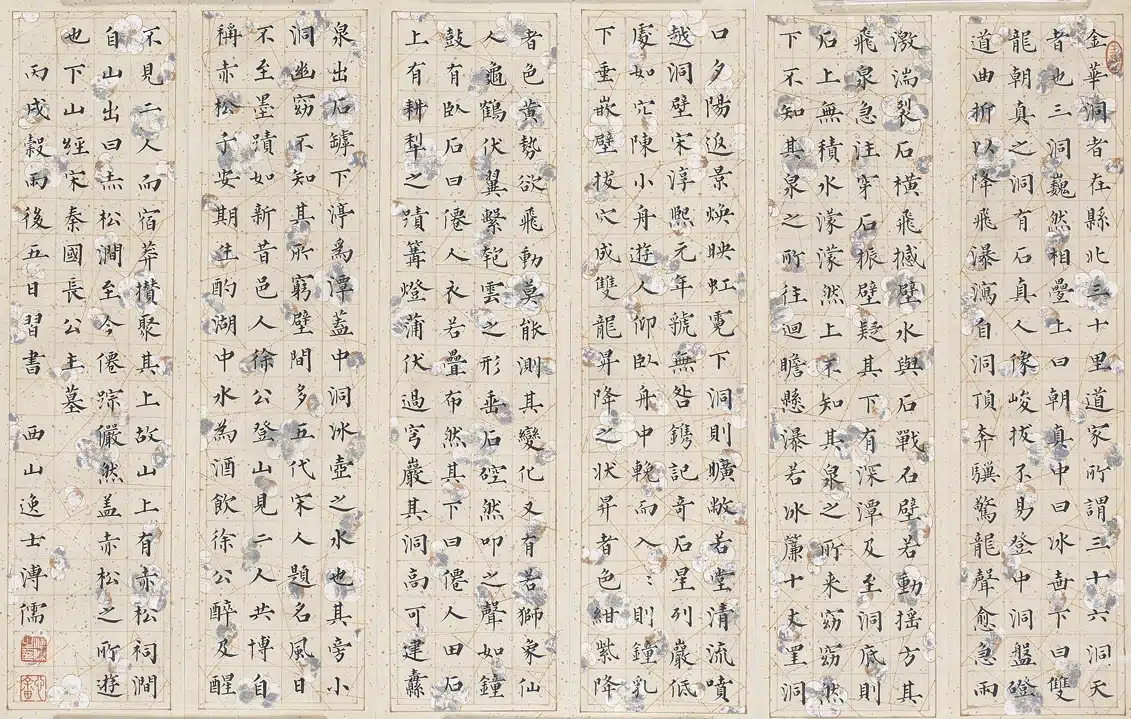 金華洞者在縣北三十里道家所謂三十六洞天
者也三洞巍然相疊上曰朝真中曰冰壺下曰雙
龍朝真之洞有石真人像峻拔不易登中洞盤磴
道曲折以降飛瀑瀉自洞頂奔驥驚龍聲愈急雨
激湍裂石橫飛撼壁水與石戰石壁若動搖方其
飛泉急注穿石振壁疑其下有深潭及至洞底則
石上無積水濛濛然上不知其泉之所来窈窈然
下不知其泉之所往迴瞻懸瀑若冰簾十丈罣洞
口夕陽返景煥映虹霓下洞則曠敞若堂清流噴
越洞壁宋淳熙元年虢無咎鐫記奇石星列巖低
處如穴陳小舟遊人仰臥舟中輓而入：則鐘乳
下垂嵌壁拔穴成雙龍昇降之狀昇者色紺紫降
者色黃勢欲飛動莫能測其變化又有若獅象仙
人龜鶴伏翼繫匏雲之形垂石硿然叩之聲如鐘
鼓有臥石曰僊人衣若疊布然其下曰僊人田石
上有耕犁之蹟篝燈蒲伏過穹巖其洞高可建纛
泉出石罅下渟為潭蓋中洞冰壺之水也其旁小
洞幽窈不知其所窮壁間多五代宋人題名風日
不至墨蹟如新昔邑人徐公登山見二人共博自
稱赤松子安期生酌湖中水為酒飲徐公醉及醒
不見二人而宿莽攢聚其上故山上有赤松祠澗
自山出曰赤松澗至今僊踪儼然盖赤松之所遊
也下山經宋秦國長公主墓
丙戌穀雨後五日習書 西山逸士溥儒